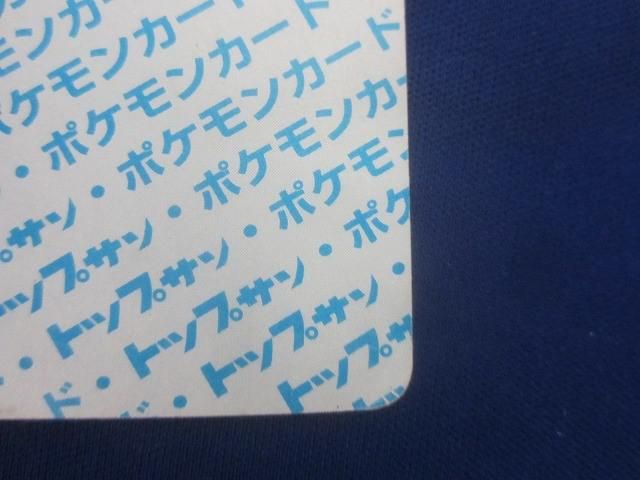 ンカード
ポケモンカード
・ポケモンカード
・ポケモンカード
トップサン・ポケモンカ
トップサン・ポケモン
・トップサン・ポケ
ド・トップサン・
・トップサン
トッ